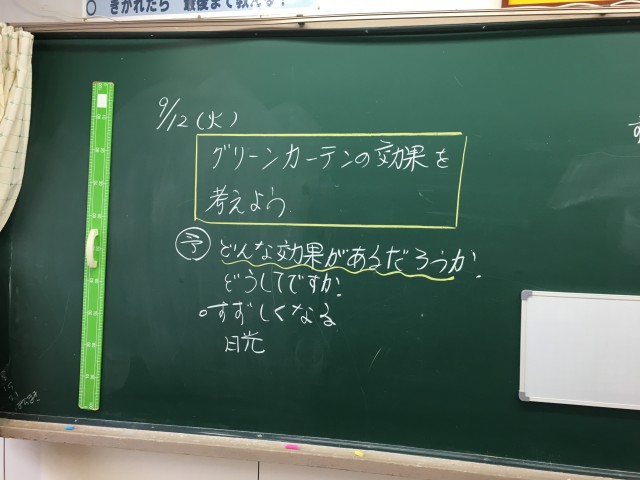 ○ きかれたら 最後まで教える!
9/12(火)
グリーンカーテンの効果を
考えよう
予 どんな効果があるだろうか。
どうしてですか。
○すずしくなる
日光
す